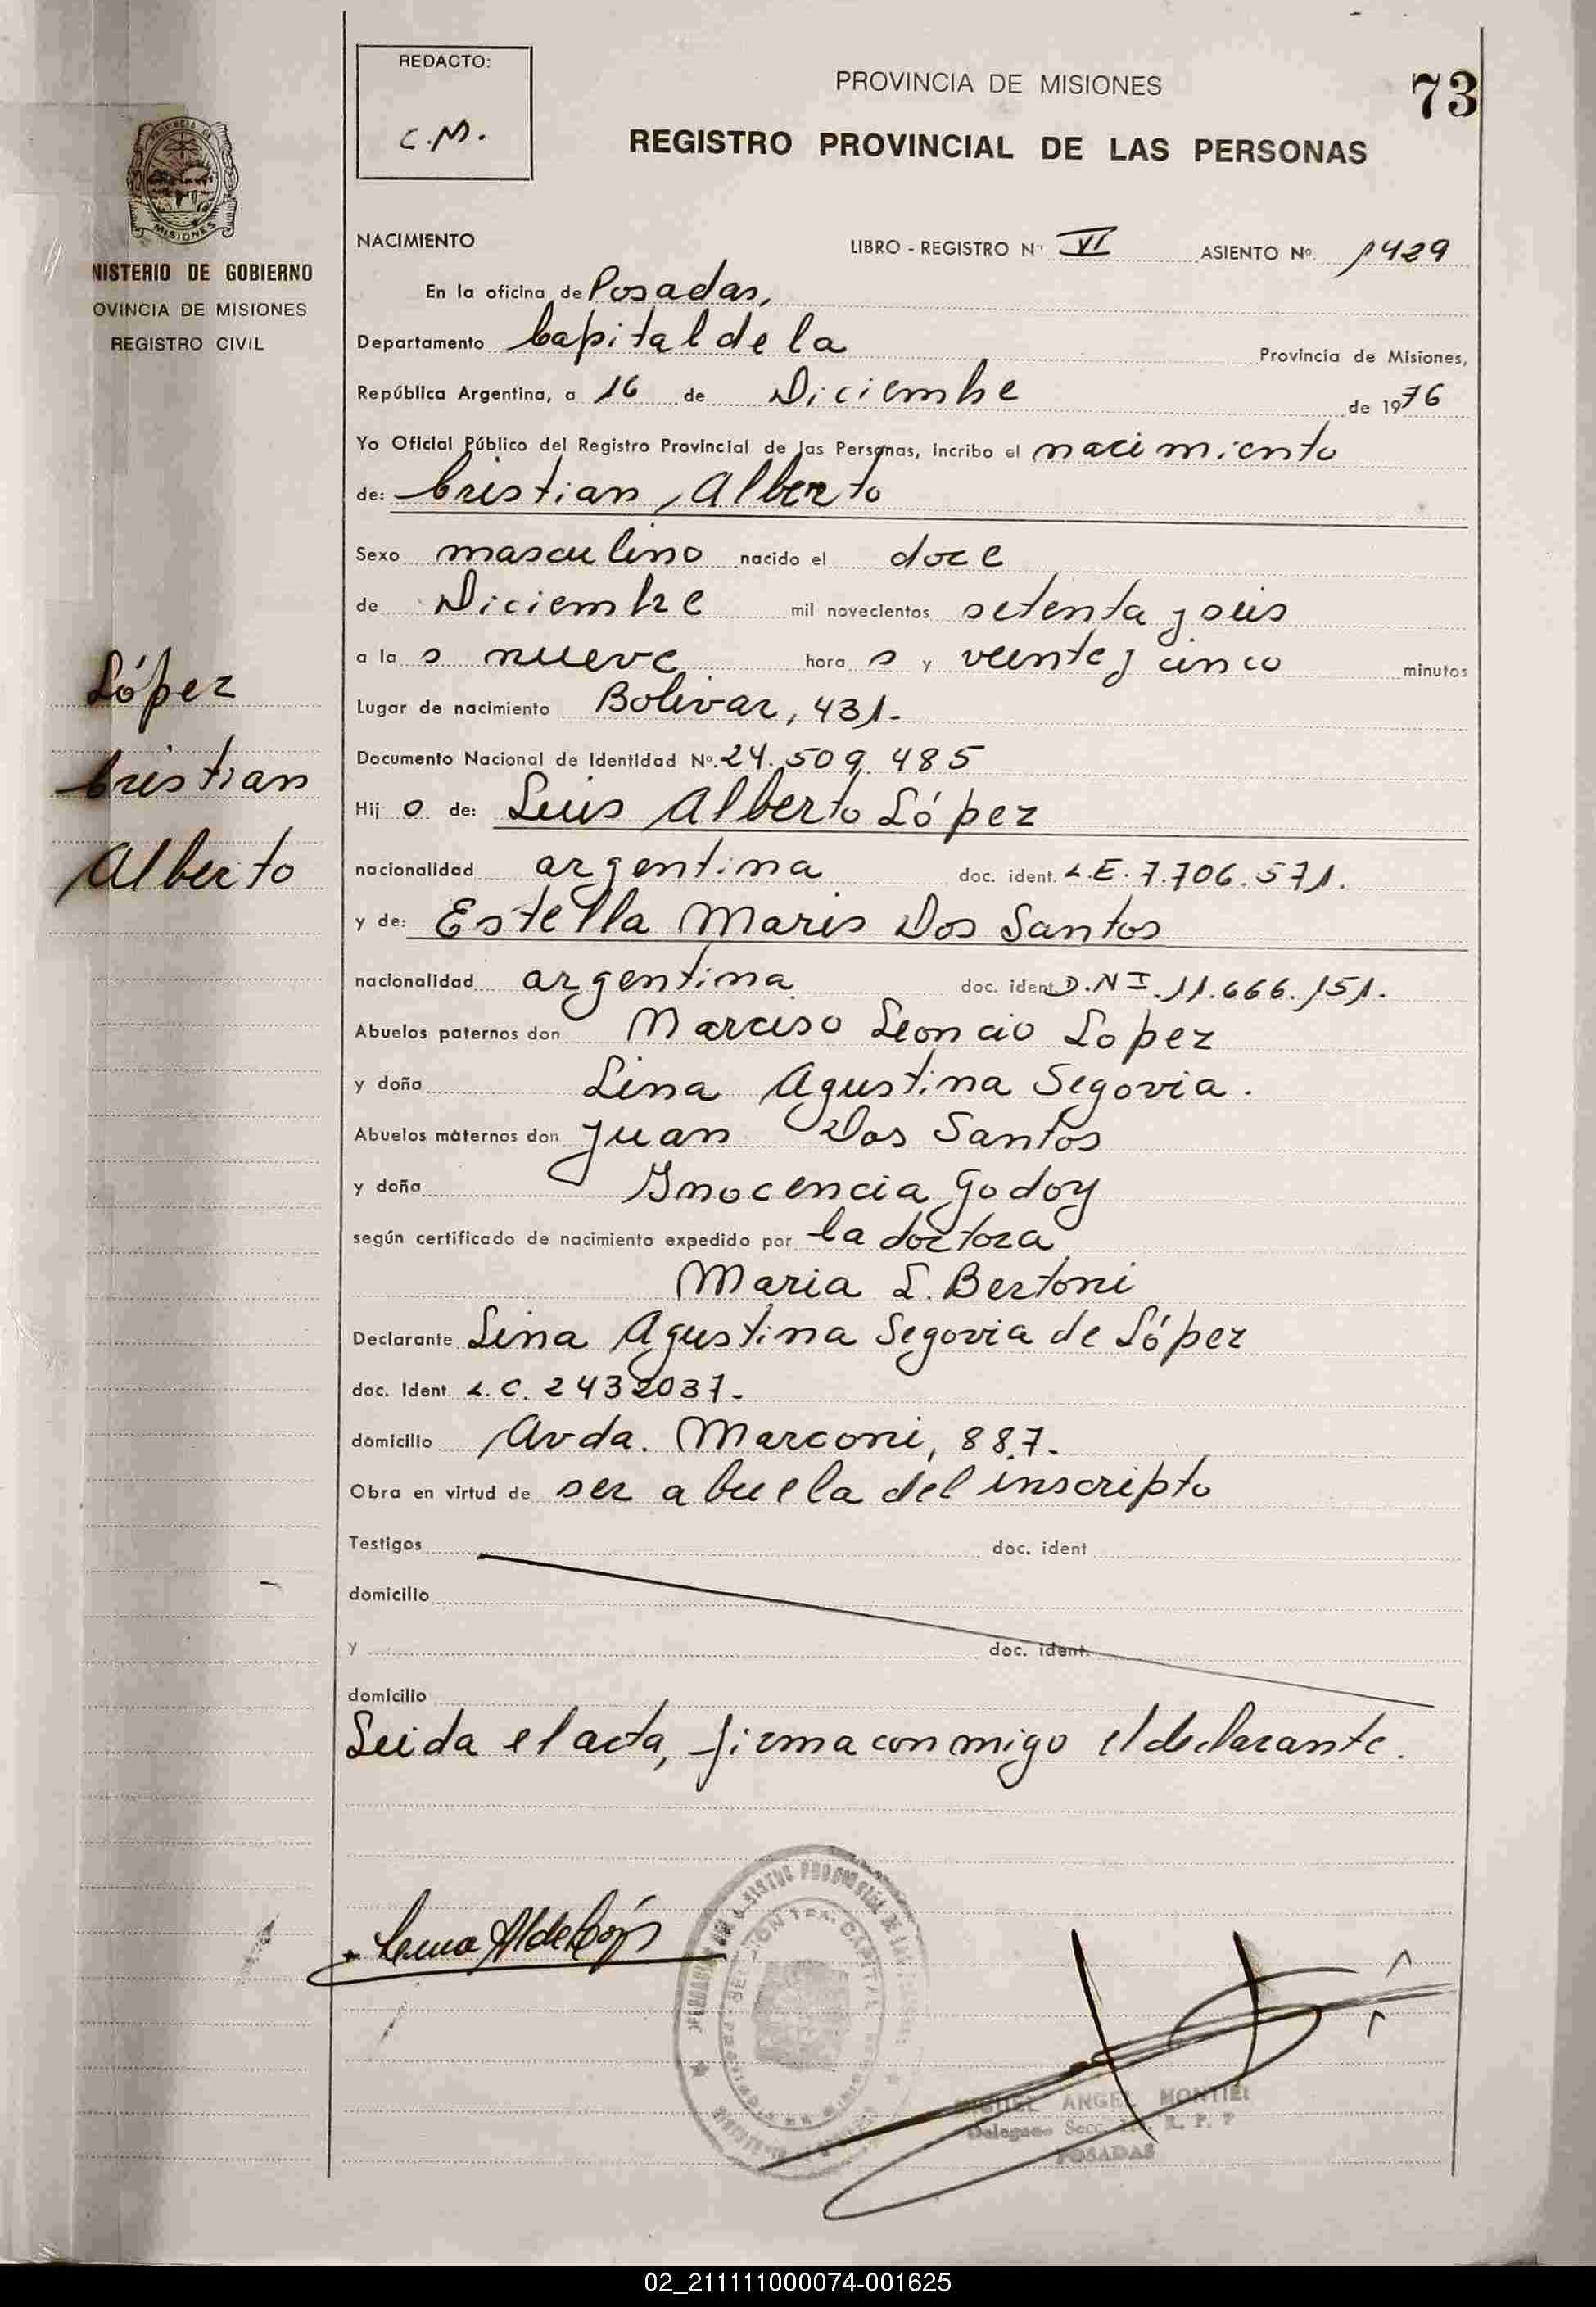 REDACTO:
C.M.
PROVINCIA DE MISIONES
73
REGISTRO PROVINCIAL DE LAS PERSONAS
MISIONES
NISTERIO DE GOBIERNO
OVINCIA DE MISIONES
REGISTRO CIVIL
NACIMIENTO LIBRO - REGISTRO Nº VI ASIENTO Nº 1429
En la oficina de Posadas,
Departamento Capital de la Provincia de Misiones,
República Argentina, a 16 de Diciembre de 1976
Yo Oficial Público del Registro Provincial de las Personas, incribo el nacimiento
de: Cristian Alberto
Sexo masculino nacido el doce
de Diciembre mil novecientos setenta y seis
a la s nueve hora s y veinte y cinco minutos
Lugar de nacimiento Bolivar, 431.-
Documento Nacional de Identidad Nº. 24.509.485
Hij o de: Luis Alberto López
nacionalidad argentina doc. ident. L.E. 7.706.571.
y de: Estella Maris Dos Santos
nacionalidad argentina doc. ident D.N.I. 11.666.151.
Abuelos paternos don Narciso Leoncio Lopez
y doña Lina Agustina Segovia.
Abuelos maternos don Juan Dos Santos
y doña Inocencia Godoy
según certificado de nacimiento expedido por la doctora
Maria L. Bertoni
Declarante Lina Agustina Segovia de López
doc. Ident. L.C. 2432037.-
domicilio Avda. Marconi, 887.-
Obra en virtud de ser abuela del inscripto
Testigos doc. ident
domicilio
y doc. ident.
domicilio
Leida el acta, firma conmigo el declarante.
López
Cristian
Alberto
MIGUEL ANGEL MONTIEL
Delegado Secc. R. P. P
POSADAS
02_211111000074-001625